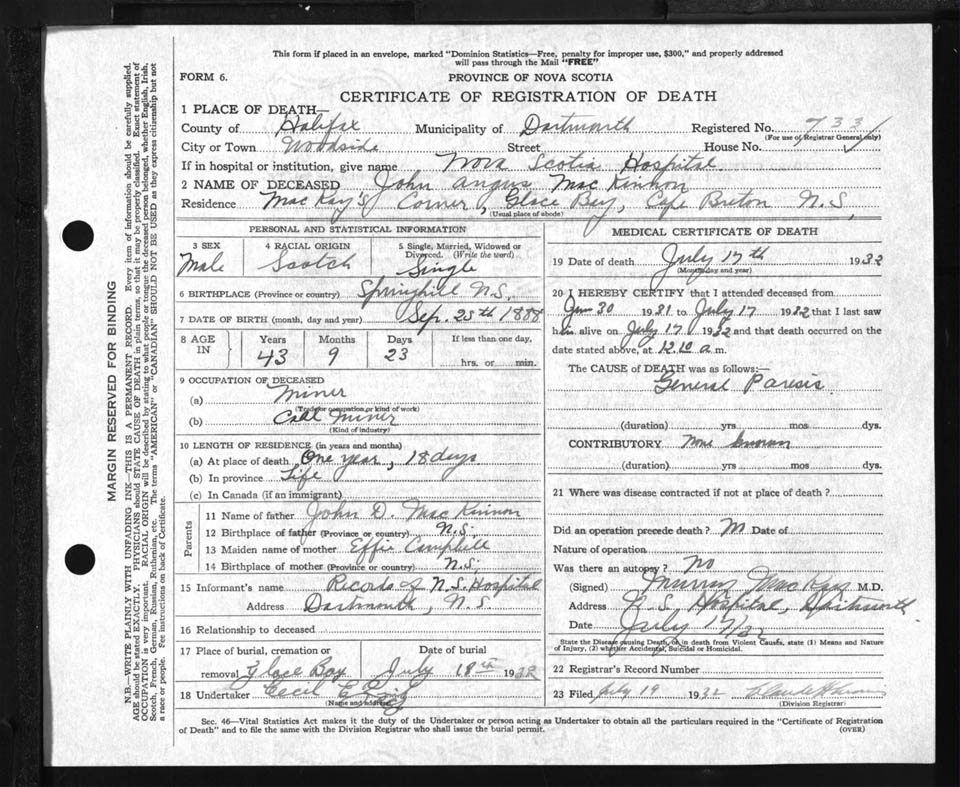 This form if placed in an envelope, marked "Dominion Statistics—Free, penalty for improper use, $300," and properly addressed
will pass through the Mail "FREE"
FORM 6.
PROVINCE OF NOVA SCOTIA
CERTIFICATE OF REGISTRATION OF DEATH
1 PLACE OF DEATH—
County of Halifax Municipality of Dartmouth Registered No. 733
(For use of Registrar General only)
City or Town Woodside Street House No.
If in hospital or institution, give name Nova Scotia Hospital
2 NAME OF DECEASED John Angus MacKinnon
Residence MacKay's Corner, Glace Bay, Cape Breton N.S,
(Usual place of abode)
PERSONAL AND STATISTICAL INFORMATION
3 SEX 4 RACIAL ORIGIN 5 Single, Married, Widowed or
Divorced. (Write the word)
Male Scotch Single
6 BIRTHPLACE (Province or country) Springhill N.S.
7 DATE OF BIRTH (month, day and year) Sep. 25th 1888
8 AGE IN Years Months Days If less than one day,
43 9 23 hrs. or min.
9 OCCUPATION OF DECEASED
(a) Miner
(Trade or occupation or kind of work)
(b) Coal Miner
(Kind of industry)
10 LENGTH OF RESIDENCE (in years and months)
(a) At place of death One year, 18 days
(b) In province Life
(c) In Canada (if an immigrant)
Parents
11 Name of father John D. MacKinnon
12 Birthplace of father (Province or country) N.S.
13 Maiden name of mother Effie Campbell
14 Birthplace of mother (Province or country) N.S.
15 Informant's name Records of N.S. Hospital
Address Dartmouth, N.S.
16 Relationship to deceased
17 Place of burial, cremation or Date of burial
removal Glace Bay July 18th 1932
18 Undertaker Cecil E.
(Name and address)
MEDICAL CERTIFICATE OF DEATH
19 Date of death July 17th 1932
(Month day and year)
20 I HEREBY CERTIFY that I attended deceased from
Jun 30 1931 to July 17 1932 that I last saw
him alive on July 17 1932 and that death occurred on the
date stated above, at 12.10 a.m.
The CAUSE of DEATH was as follows:—
General Paresis
(duration) yrs mos dys.
CONTRIBUTORY None known
(duration) yrs mos dys.
21 Where was disease contracted if not at place of death?
Did an operation precede death? Date of
Nature of operation
Was there an autopsy? no
(Signed) Murray MacKay M.D.
Address N.S. Hospital, Dartmouth
Date July 17/32
State the Disease causing Death, or in death from Violent Causes, state (1) Means and Nature
of Injury, (2) whether Accidental, Suicidal or Homicidal.
22 Registrar's Record Number
23 Filed July 19 1932
(Division Registrar)
Sec. 46—Vital Statistics Act makes it the duty of the Undertaker or person acting as Undertaker to obtain all the particulars required in the "Certificate of Registration
of Death" and to file the same with the Division Registrar who shall issue the burial permit. (OVER)
MARGIN RESERVED FOR BINDING
N.B.—WRITE PLAINLY WITH UNFADING INK—THIS IS A PERMANENT RECORD. Every item of information should be carefully supplied.
AGE should be stated EXACTLY. PHYSICIANS should STATE CAUSE OF DEATH in plain terms, so that it may be properly classified. Exact statement of
OCCUPATION is very important. RACIAL ORIGIN will be described by stating to what people or tongue the deceased person belonged, whether English, Irish,
Scotch, French, German, Russian, Ruthenian, etc. The terms "AMERICAN" or "CANADIAN" SHOULD NOT BE USED as they express citizenship but not
a race or people. See instructions on back of Certificate.